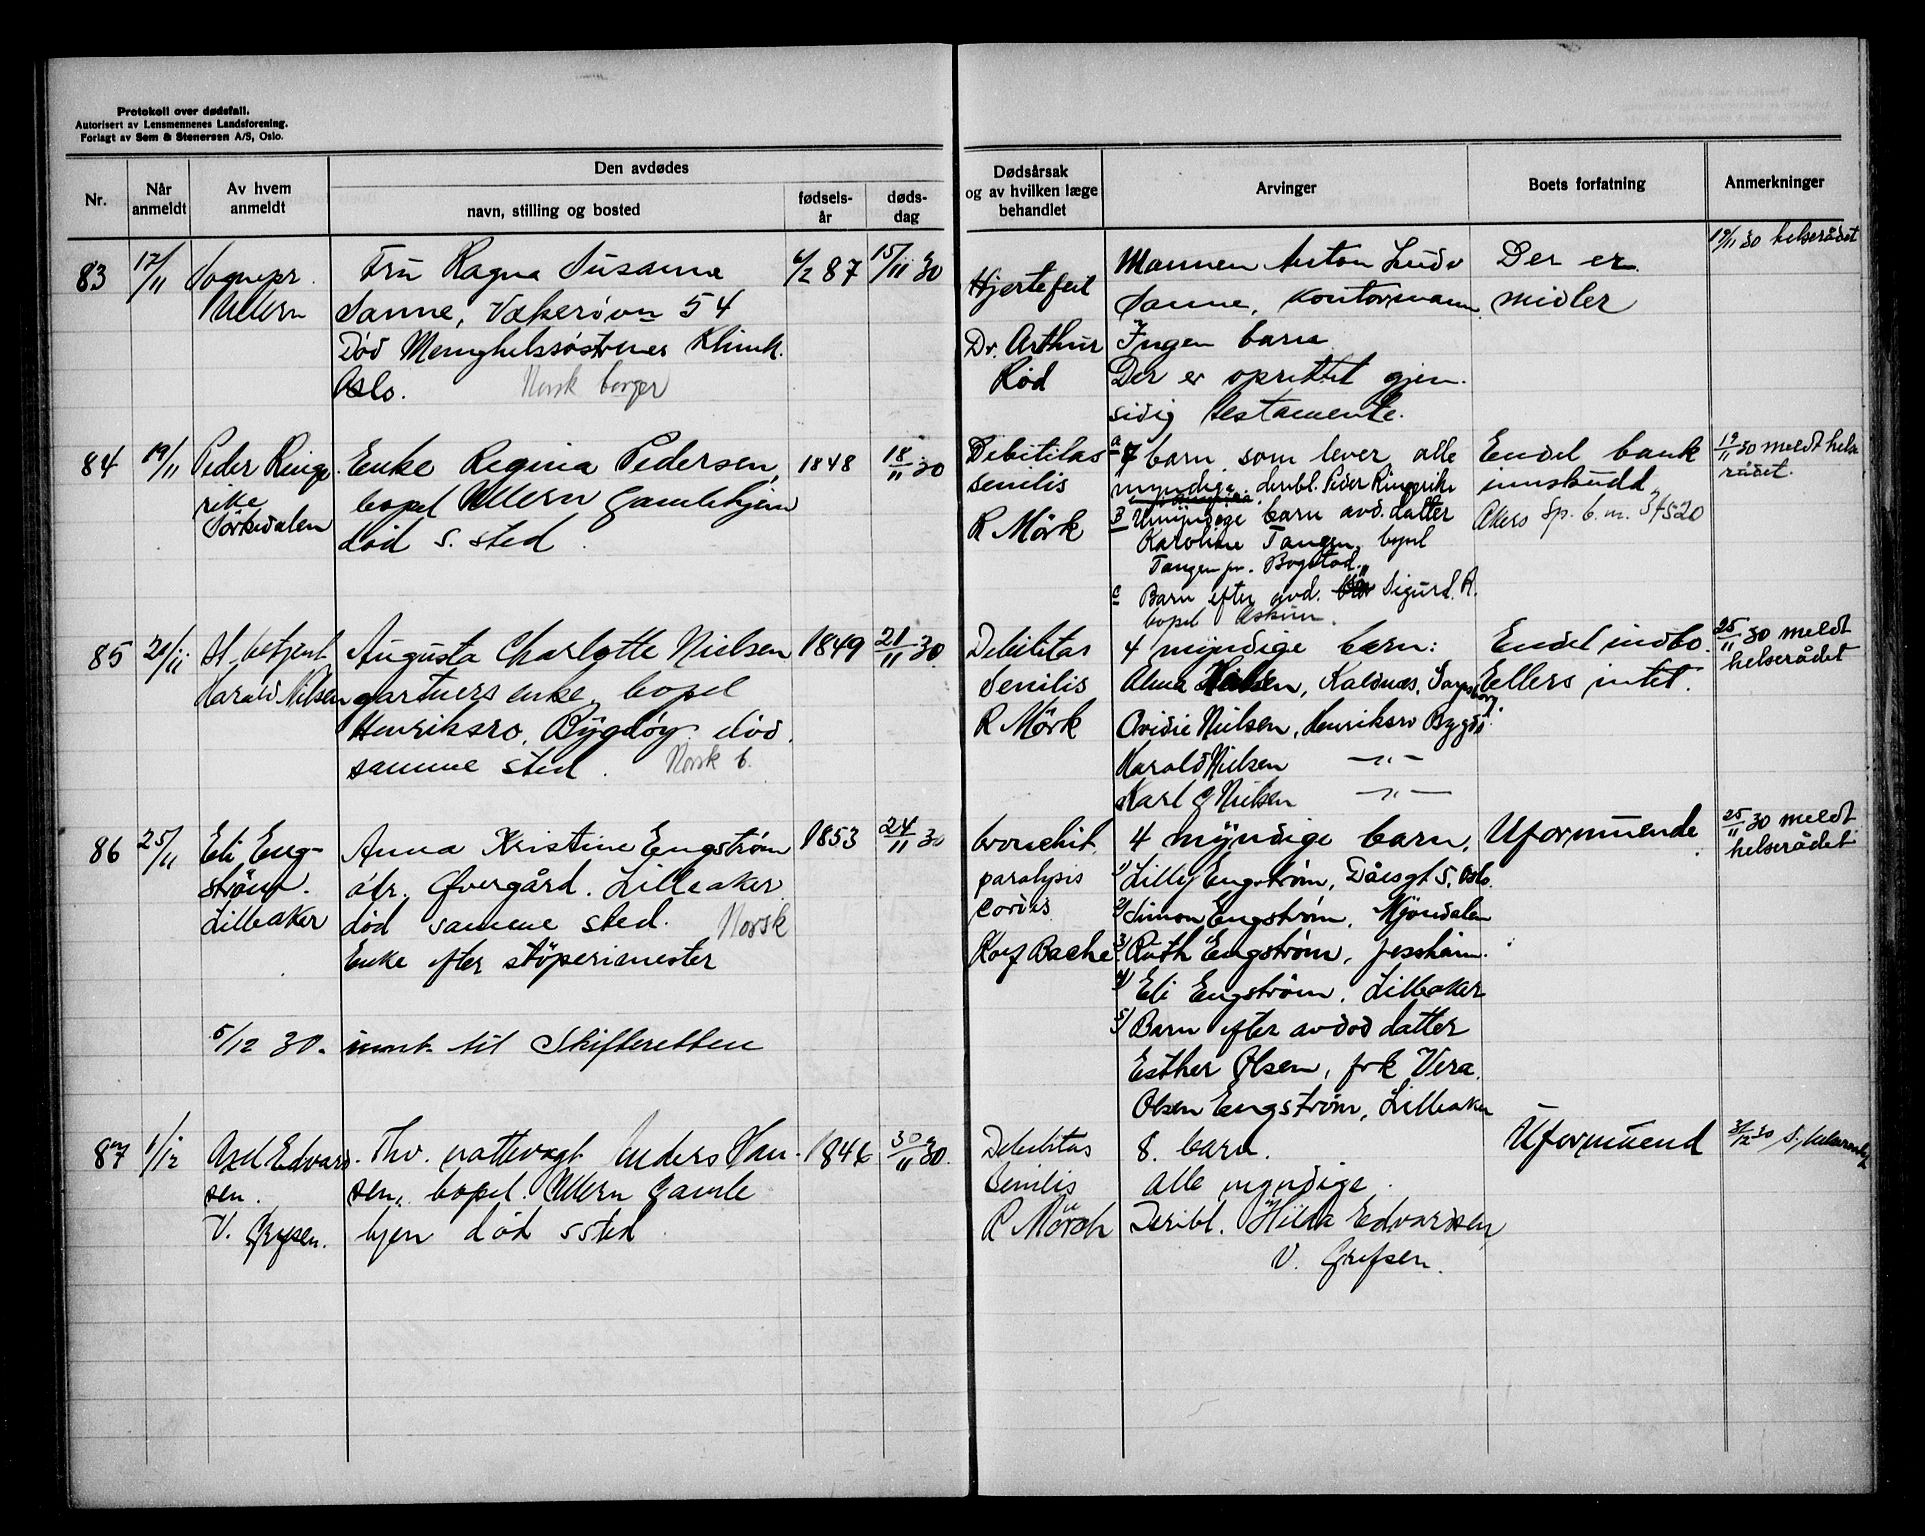 Protokoll over dødsfall.
Autorisert av Lensmennenes Landsforening.
Forlagt av Sem & Stenersen A/S, Oslo.
Nr.
Når anmeldt
Av hvem anmeldt
Den avdødes
navn, stilling og bosted
fødsels-år
døds-dag
Dødsårsak og av hvilken læge behandlet
Arvinger
Boets forfatning
Anmerkninger
83
17/11
Sognepr.
Ullern
Fru Ragna Susanne
Sanne, Vækerøvn 54
Død Menighetssøstrenes Klinik.
Oslo. Norsk borger
6/2 87
15/11 30
Hjertefeil
Dr. Arthur
Rød
Mannen Anton Ludv
Sanne, Kontormann
Ingen barn
Der er oprettet gjen-
sidig testamente.
Der er
midler
19/11 30 helserådet
84
19/11
Peder Ringe
rike
Sørkedalen
Enke Regina Pedersen,
bopel Ullern Gamlehjem
død s. sted.
1848
18/11 30
Debititas
senilis
R Mörk
a 7 barn som lever alle
myndige, deribl. Peder Ringerike
B Umyndige barn avd. datter
Karoline Tangen, bopel
Tangen pr. Bogstad.
c Barn efter avd. Sigurd R.
bopel Askim.
Endel bank
innskudd
Akers Sp. b. m. 37520
19/11 30 meldt helse
rådet.
85
20/11
St. betjent
Harald Nilsen
Augusta Charlotte Nielsen
gartners enke, bopel
Henriksro, Bygdøy. død
samme sted. Norsk b.
1849
21/11 30
Debilitas
Senilis
R Mörk
4 myndige barn:
Alma, Kaldnæs, Sarpsborg
Ovidie Nielsen, Henriksro Bygdö.
Harald Nielsen —"—
Karl G Nielsen —"—
Endel indbo.
Eellers intet.
25/11 30 meldt
helserådet
86
25/11
Eli Eng-
strøm.
Lilleaker
Anna Kristine Engstrøm
adr. Øvergård. Lilleaker
død samme sted. Norsk
Enke efter støperimester
1853
24/11 30
bronchit.
paralysis
cordis
Rolf Bache
4 myndige barn,
1/ Lilly Engstrøm, Dåesgt 5, Oslo.
2/ Simon Engström, Mjöndalen
3/ Ruth Engstrøm, Jessheim.
4/ Eli Engström, Lilleaker
5/ Barn efter avdød datter
Esther Olsen, frk Vera
Olsen Engstrøm, Lilleaker
Uformuende
25/11 30 meldt
helserådet
5/12 30. innt. til Skifteretten
87
1/12
Axel Edvard-
sen.
V. Grefsen.
Fhv. nattevagt Anders Han-
sen, bopel. Ullern Gamle
hjem død s sted
1846
30/11 30.
Debilitas
Senilis
R Mörch
8. barn.
alle myndige.
Deribl. Hilda Edvardsen
V. Grefsen.
Uformuend
3/12 30